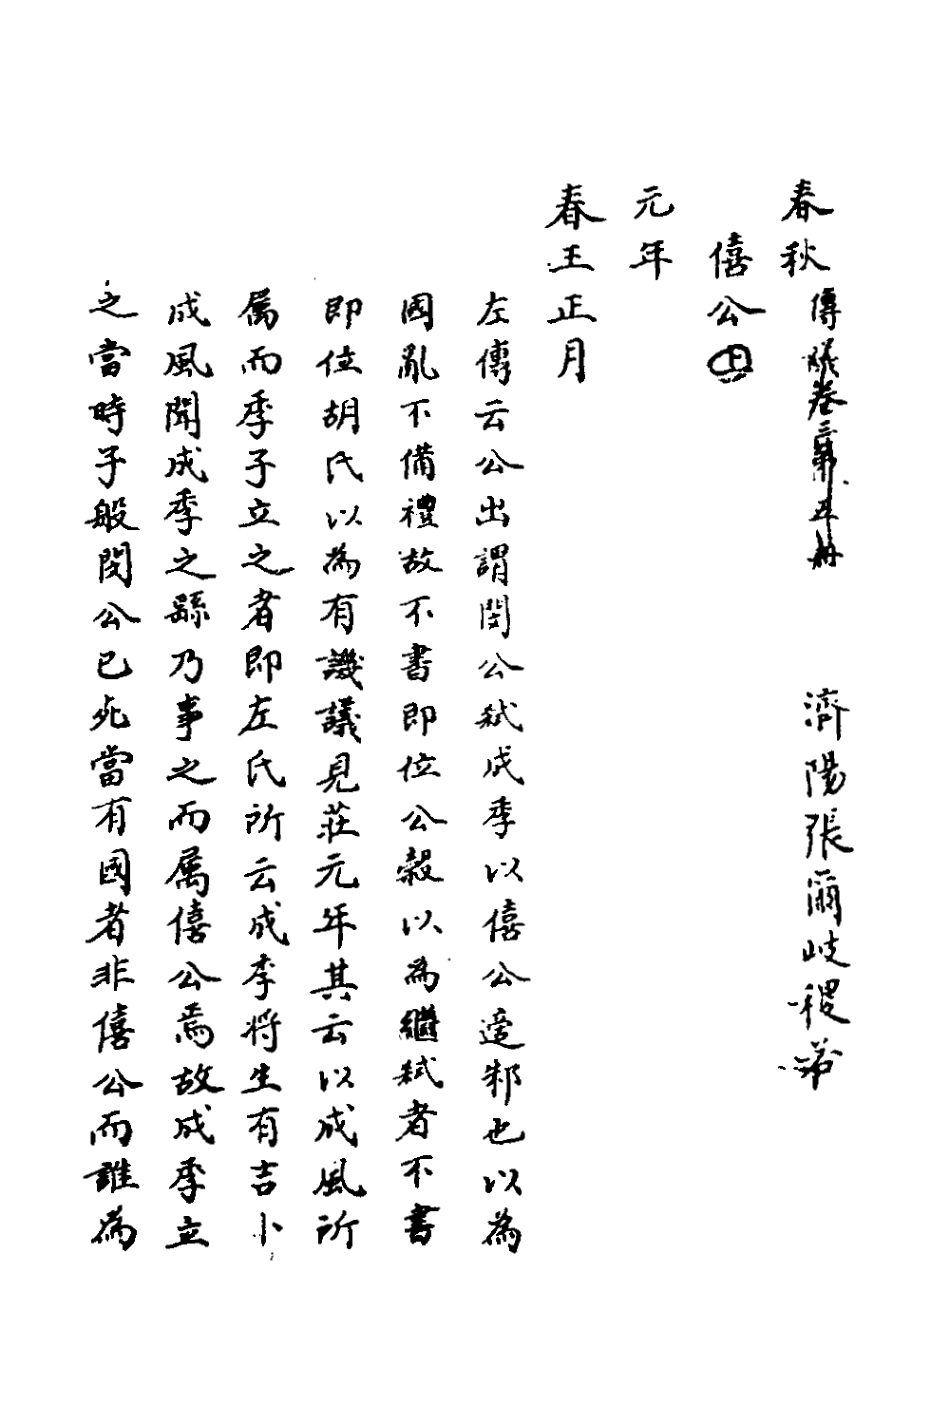 春秋傳議卷三第五册 濟陽張爾岐稷若
僖公上
元年
春王正月
左傳云公出謂閔公弒成季以僖公適邾也以為
國亂不備禮故不書即位公穀以為繼弒者不書
即位胡氏以為有譏議見莊元年其云以成風所
属而季子立之者即左氏所云成季將生有吉卜
成風聞成季之繇乃事之而属僖公焉故成季立
之當時子般閔公已死當有國者非僖公而誰為